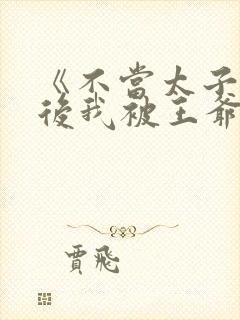 《不當太子
後我被王爺
賈飛